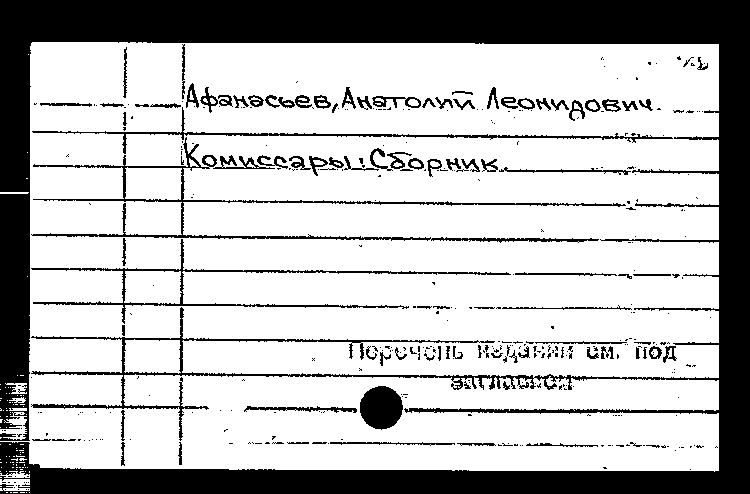 Афанасьев, Анатолий Леонидович.
Комиссары: Сборник.
Перечень изданий см. под
заглавием